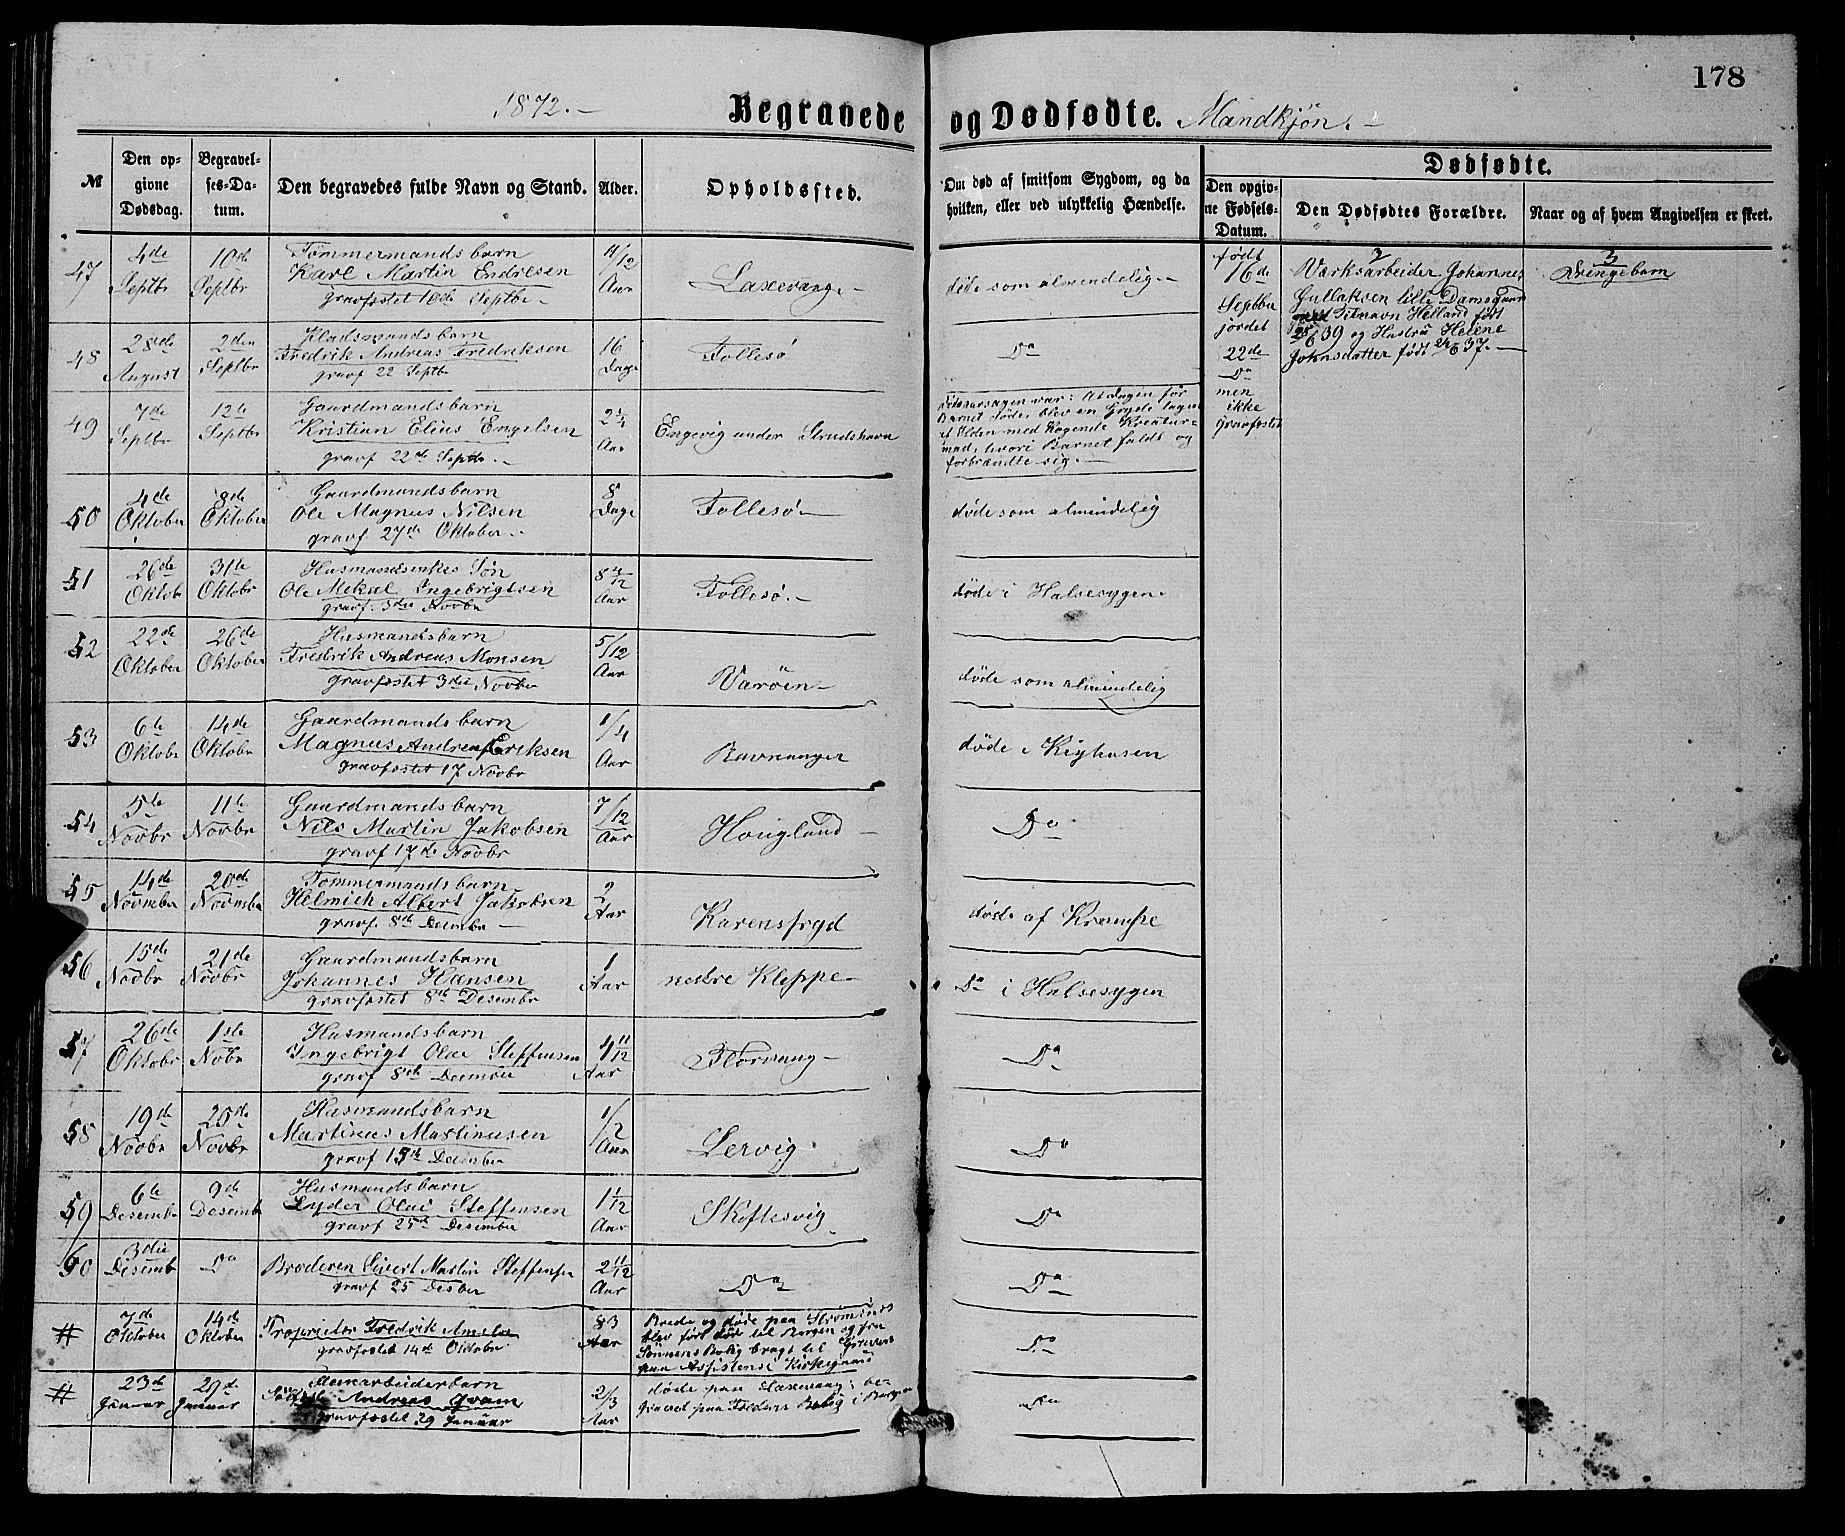 178
1872.-
Begravede og Dødfødte. Mandkjøn.-
Dødfødte.
№
Den opgivne Dødsdag.
Begravelses-Datum.
Den begravedes fulde Navn og Stand.
Alder.
Opholdssted.
Om død af smitsom Sygdom, og da hvilken, eller ved ulykkelig Hændelse.
Den opgivne Fødsels-Datum.
Den Dødfødtes Forældre.
Naar og af hvem Angivelsen er skeet.
47 4de Septbr 10de Septbr
Tømmermands barn
Karl Martin Endresen
gravfæstet 10de Septbr.
11/12 Aar
Laxevang.-
døde som almindelig.-
født
16de
Septbr
jordet
22de
Da
men
ikke
gravfæstet
Værksarbeider Johannes
Gullaksen lille Damsgaard
Tilnavn Helland født
39 og Hustru Helene
Johnsdatter født 37.-
3
Drengebarn
48 28de August 2den Septbr
Fredrik Andreas Fredriksen
gravf 22 Septbr
16 Dage
Follesø
Do
49 7de Septbr 12te Septbr
Gaardmandsbarn
Kristian Elius Engelsen
gravf 22de Septbr.-
2 1/4 Aar
Engevig under Strudshavn
Dødsaarsagen var: At dagen før
Barnet døde, blev en Gryde tagen
af Ilden med Kogende Kreatur-
mad, hvori Barnet faldt og
forbrændte sig.-
50 4de Oktober 8de Oktober
Gaardmandsbarn
Ole Magnus Nilsen
gravf 27de Oktober.-
8 Dage
Follesø.-
døde som almindelig
51 26de Oktobr 31te Oktobr
Husmandsenkes Søn
Ole Mekal Ingebrigtsen
gravf. 3die Novbr
8 4/12 Aar
Follesø.-
døde i Halsesygen.
52 22de Oktober 26de Oktober
Husmandsbarn
Fredrik Andreas Monsen
gravfæstet 3die Novbr
5/12 Aar
Varöen-
døde som almindelig
53 6te Oktobr 14de Oktobr
Gaardmandsbarn
Magnus Andreas Eriksen
gravfæstet 17 Novbr
1/4 Aar
Ravnanger
døde i Kighosen
54 5te Novbr 11te Novbr
Gaardmandsbarn
Nils Martin Jakobsen
gravf 17de Novbr
7/12 Aar
Hougland
Do
55 14de Novmbr 20de Novmbr
Tømmermandsbarn
Helmich Albert Jakobsen
gravf. 8de Decembr
2 Aar
Karensfryd
døde af Krampe
56 15de Novbr 21de Novbr
Gaardmandsbarn
Johannes Hansen
gravfæstet 8de Desembr
1 Aar
nedre Kleppe-
Do i Halsesygen
57 26de Oktobr 1ste Nobr
Husmandsbarn
Ingebrigt Olai Steffensen
gravf 8de Decmber
4 11/12 Aar
Florvaag-
Do
58 19de Novbr 25de Novbr
Husmandsbarn
Martinus Martinusen
gravf 15de Decmber
1/2 Aar
Lervig
Do
59 6te Desembr 9de Desembr
Husmandsbarn
Lyder Olai Steffensen
gravf 25de Desember
1 1/12 Aar
Skiftesvig
Do
60 3die Desemb Do
Broderen Sivert Martin Steffensen
gravf 25 Desbr
2 11/12 Aar
Do
Do
# 7de Oktober 14de Oktober
Proprietær Fredrik Ameln
gravfæstet 14de Oktobr
83 Aar
Boede og døde paa Strømsnes
blev ført død til Bergen og fra
Sønnens Bolig bragt til Graven
paa Assistense Kirkegaard
Do
# 23de Januar 29de Januar
Andreas Gram
gravfæstet 29 Januar
2/3 Aar
døde paa Laxevaag; be-
gravet paa Faderens Bolig i Bergen
Do